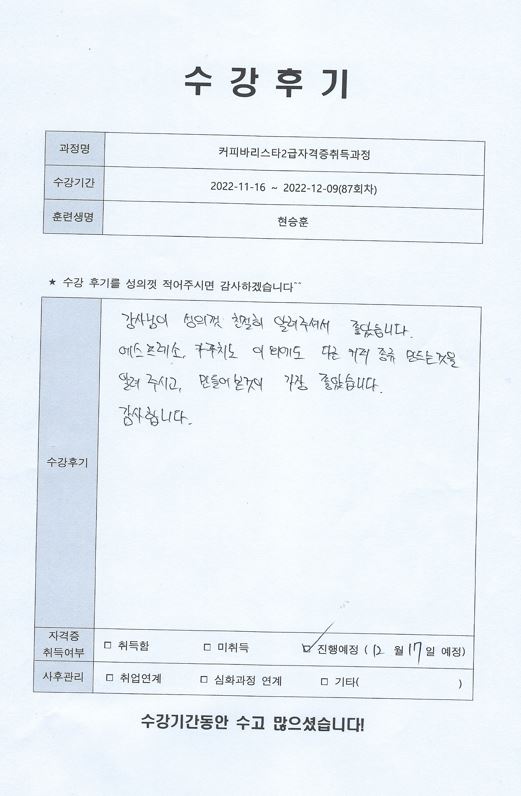 수강후기
과정명 커피바리스타2급자격증취득과정
수강기간 2022-11-16 ~ 2022-12-09(87회차)
훈련생명 현승훈
★ 수강 후기를 성의껏 적어주시면 감사하겠습니다^^
수강후기
강사님이 성의껏 친절히 알려주셔서 좋았습니다.
에스프레소, 카푸치노 이 외에도 다른 커피 종류 만드는것을
알려 주시고, 만들어 본것이 가장 좋았습니다.
감사합니다.
자격증
취득여부 □ 취득함 □ 미취득 □ 진행예정 ( 12 월 17 일 예정)
사후관리 □ 취업연계 □ 심화과정 연계 □ 기타( )
수강기간동안 수고 많으셨습니다!